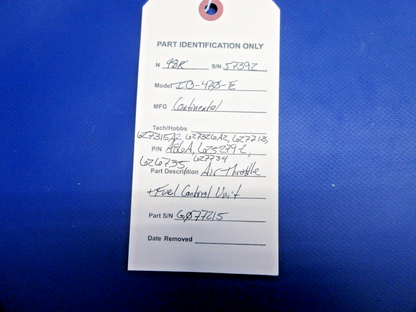 PART IDENTIFICATION ONLY
N 98R S/N 57392
Model IO-470-E
MFG Continental
Tach/Hobbs
627315A2, 627326A2, 627213,
P/N A06A, 625279-2,
626735, 627734
Part Description Air Throttle
+ Fuel Control Unit
Part S/N G077215
Date Removed